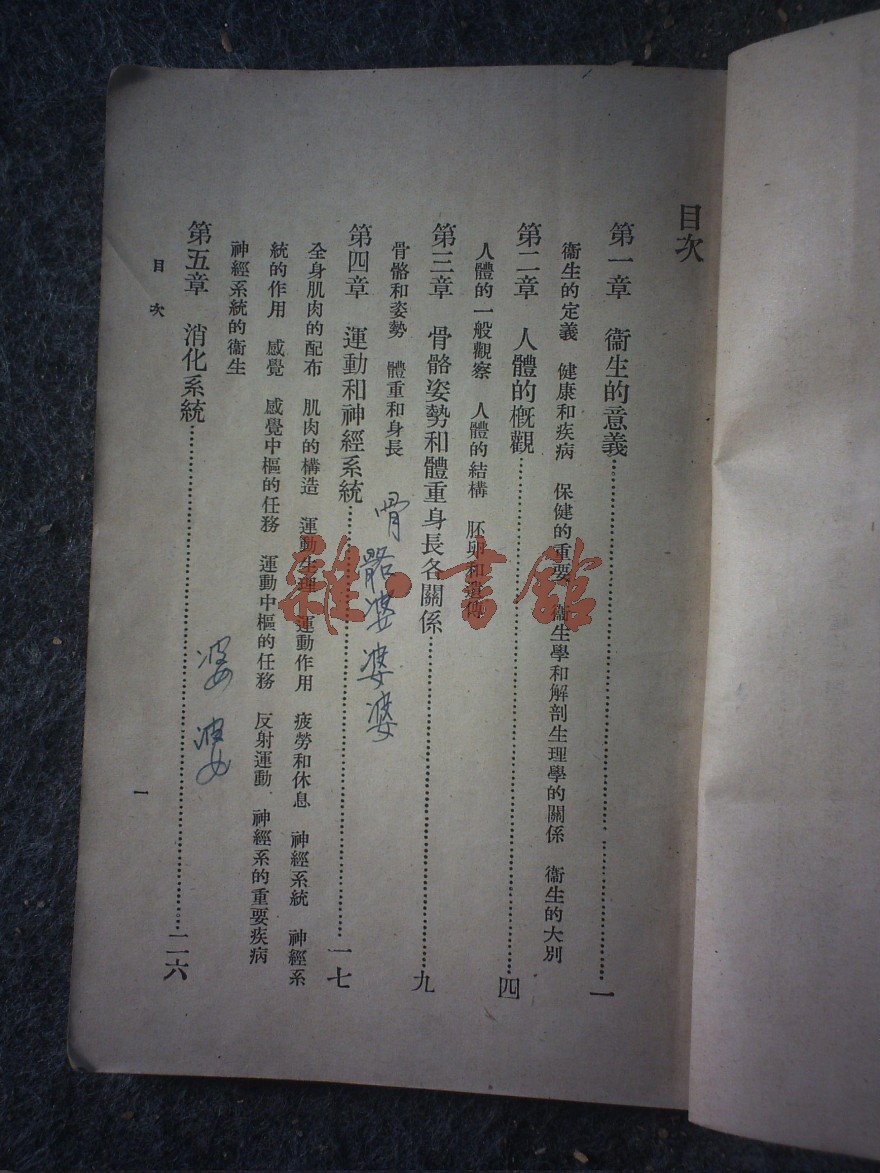 目次
第一章　衞生的意義……一
衞生的定義　健康和疾病　保健的重要　衞生學和解剖生理學的關係　衞生的大別
第二章　人體的槪觀……四
人體的一般觀察　人體的結構　胚卵和遺傳
第三章　骨骼姿勢和體重身長各關係……九
骨骼和姿勢　體重和身長
骨骼婆婆婆
第四章　運動和神經系統……一七
全身肌肉的配布　肌肉的構造　運動生理　運動作用　疲勞和休息　神經系統　神經系
統的作用　感覺　感覺中樞的任務　運動中樞的任務　反射運動　神經系的重要疾病
神經系統的衞生
婆婆
第五章　消化系統……二六
目次
一
雜·書館